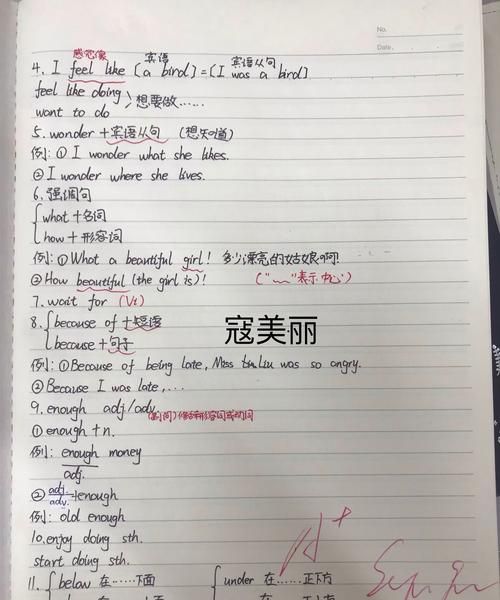 No.
Date.
感觉像 宾语 宾语从句
4. I feel like [a bird] = [I was a bird]
feel like doing
want to do 〉想要做......
5. wonder + 宾语从句 (想知道)
例: ① I wonder what she likes.
② I wonder where she lives.
6. 强调句
{ what + 名词
how + 形容词
例: ① What a beautiful girl! 多少漂亮的姑娘啊!
② How beautiful (the girl is)! ("﹏"表示中心)
7. wait for (Vt)
8. { because of + 短语
because + 句子
寇美丽
例: ① Because of being late, Miss Liu was so angry.
② Because I was late, ...
9. enough adj/adv
① enough + n.
例: enough money
adj.
② adj./adv. + enough
例: old enough
10. enjoy doing sth.
start doing sth.
11. { below 在......下面 { under 在......正下方
A+